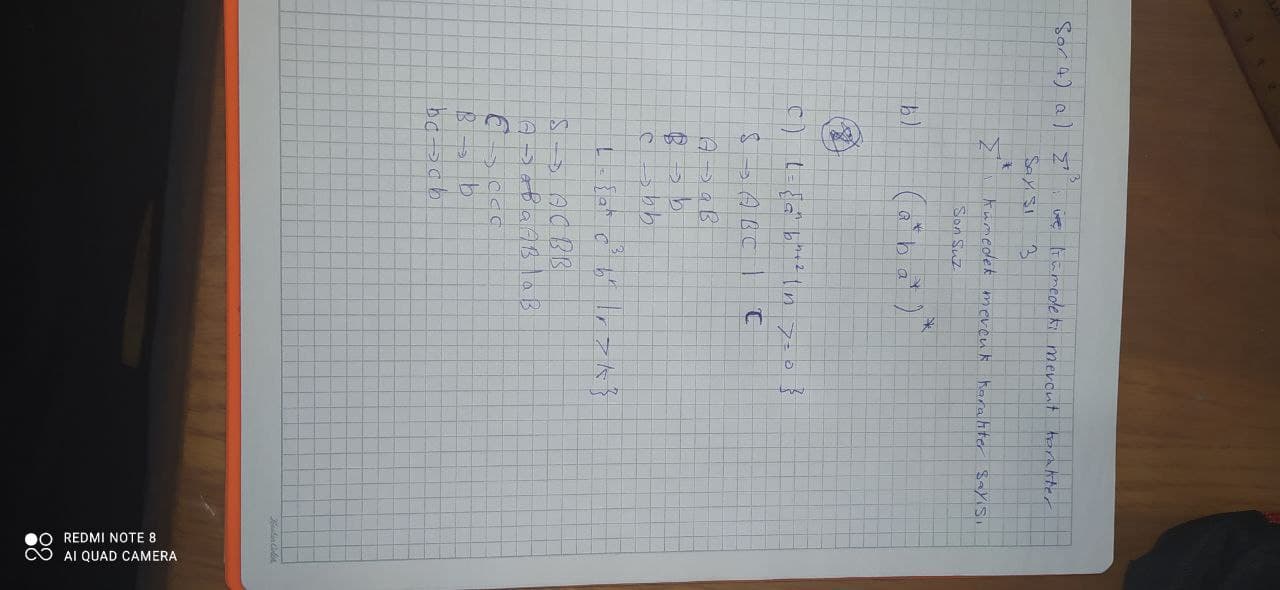 Sor 4) a) Σ³ : kümedeki mevcut karakter
sayısı 3
Σ* : kümedek mevcut karakter sayısı
sonsuz
b) (a* b a*)*
c) L = {aⁿ bⁿ⁺² | n >= 0 }
S → ABC | C
A → aB
B → b
C → bb
L = {aᵏ c³ bʳ | r > k}
S → ACBB
A → aAB | aB
C → ccc
B → b
bc → cb
REDMI NOTE 8
AI QUAD CAMERA